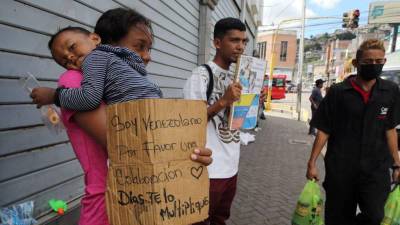 Soy Venezolano
Por Favor Una
Colaboración
Dios Te lo
Multiplique